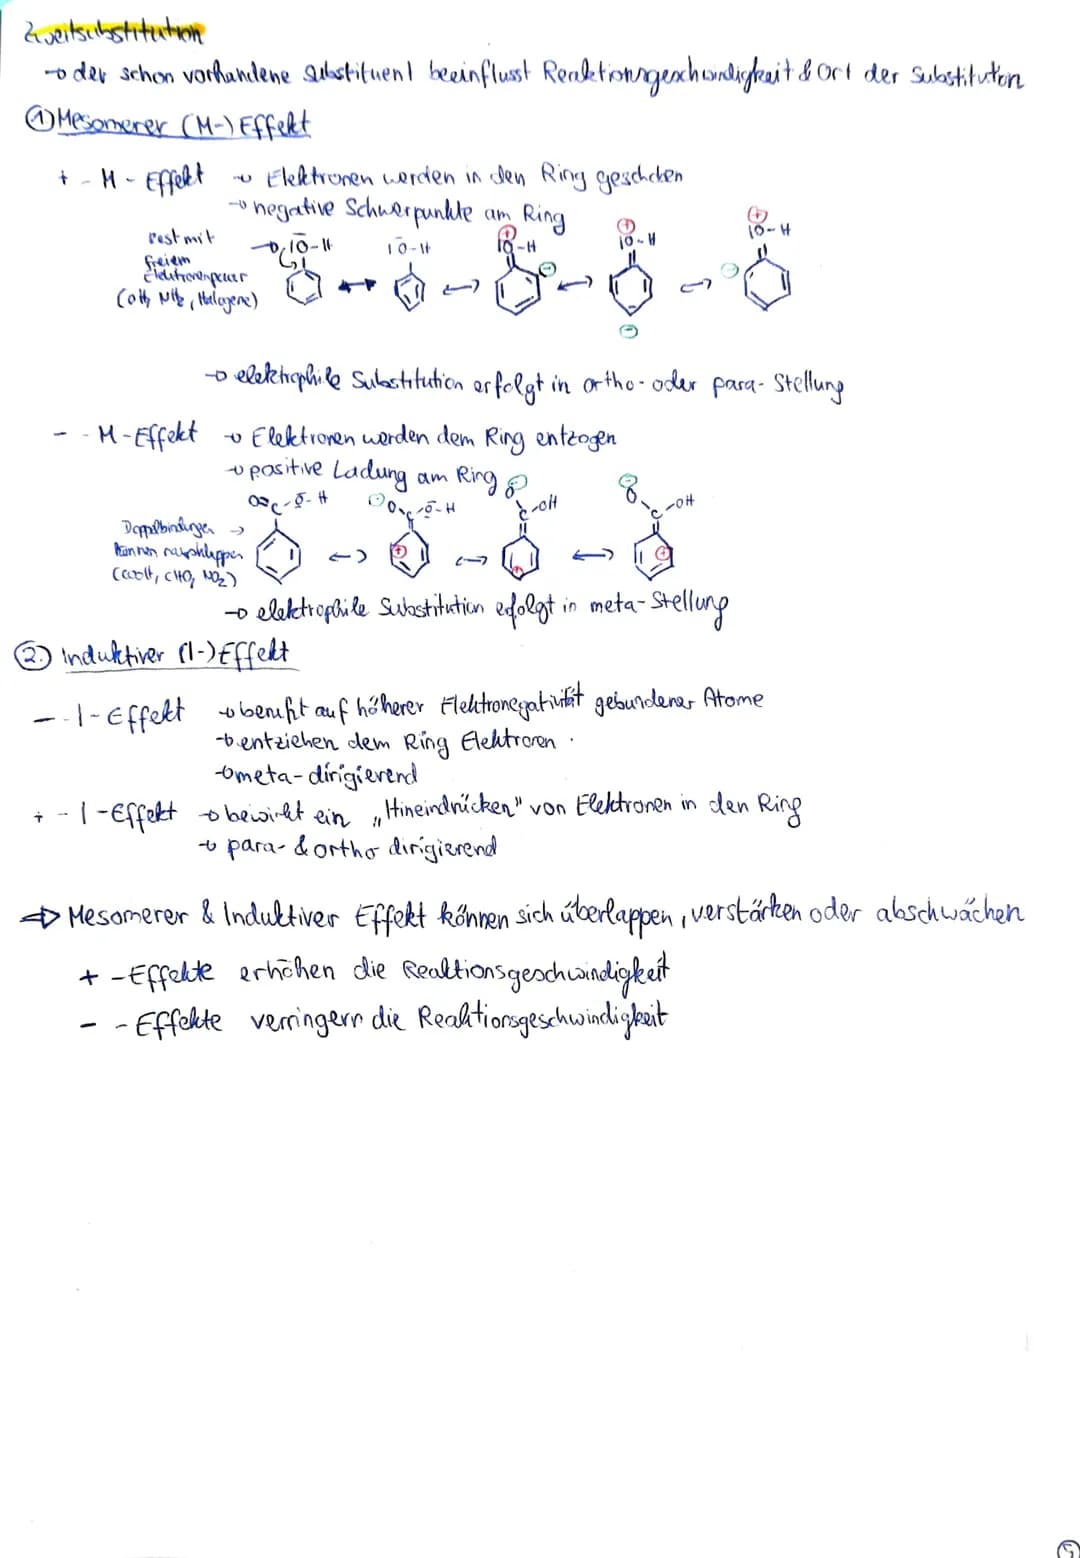 Zweitsubstitution
→ der schon vorhandene Substituent beeinflusst Reaktionsgeschwindigkeit & Ort der Substitution
① Mesomerer (M-) Effekt
+ - M - Effekt → Elektronen werden in den Ring geschoben
→ negative Schwerpunkte am Ring
Rest mit freiem Elektronenpaar (OH, NH2, Halogene)
→ elektrophile Substitution erfolgt in ortho- oder para- Stellung
- - M-Effekt → Elektronen werden dem Ring entzogen
→ positive Ladung am Ring
Doppelbindungen →
können rausklappen
(COOH, CHO, NO2)
→ elektrophile Substitution erfolgt in meta-Stellung
② Induktiver (I-) Effekt
- - I-Effekt → beruht auf höherer Elektronegativität gebundener Atome
→ entziehen dem Ring Elektronen
→ meta-dirigierend
+ - I-Effekt → bewirkt ein „Hineindrücken" von Elektronen in den Ring
→ para- & ortho dirigierend
⇒ Mesomerer & Induktiver Effekt können sich überlappen, verstärken oder abschwächen
+ -Effekte erhöhen die Reaktionsgeschwindigkeit
- -Effekte verringern die Reaktionsgeschwindigkeit
5